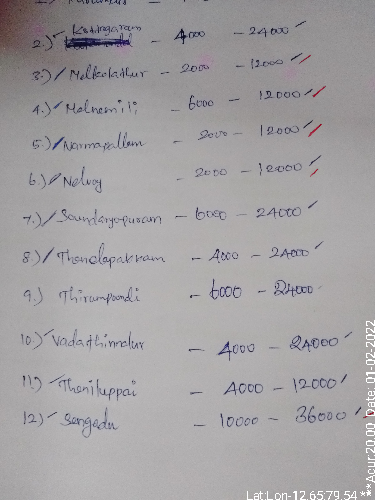 2.) Kottingaram - 4000 - 24000
3.) Melkolathur - 2000 - 12000
4.) Melnemili - 6000 - 12000
5.) Narmapallam - 2000 - 12000
6.) Nelvoy - 2000 - 12000
7.) Soundaryapuram - 6000 - 24000
8.) Thenelapakkam - 4000 - 24000
9.) Thirumpoondi - 6000 - 24000
10.) Vadathinnalur - 4000 - 24000
11.) Theniluppai - 4000 - 12000
12.) Sengadu - 10000 - 36000
Lat:Lon-12.65:79.54 ***Acur:20.00, Date: 01-02-2022